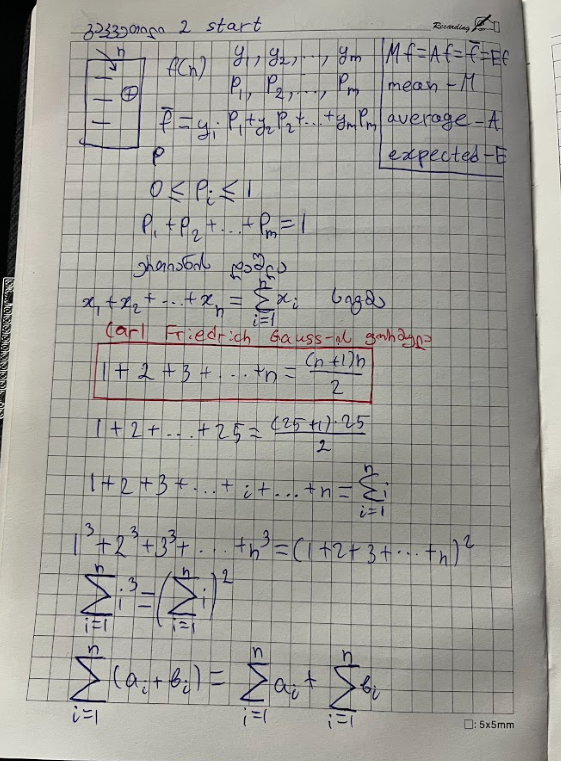 2 start
Recording
n
f(n) y₁, y₂, ..., yₘ
P₁, P₂, ..., Pₘ
f̅ = y₁·P₁+y₂P₂+...+yₘPₘ
Mf=Af=f̅=Ef
mean - M
average - A
expected - E
P
0 ≤ Pᵢ ≤ 1
P₁ + P₂ + ... + Pₘ = 1
x₁+x₂+...+xₙ = ∑ᵢ₌₁ⁿ xᵢ
Carl Friedrich Gauss-ის
1+2+3+...+n = (n+1)n/2
1+2+...+25 = (25+1)·25/2
1+2+3+...+i+...+n = ∑ᵢ₌₁ⁿ i
1³+2³+3³+...+n³=(1+2+3+...+n)²
∑ᵢ₌₁ⁿ i³ = (∑ᵢ₌₁ⁿ i)²
∑ᵢ₌₁ⁿ (aᵢ+bᵢ) = ∑ᵢ₌₁ⁿ aᵢ + ∑ᵢ₌₁ⁿ bᵢ
□: 5x5mm